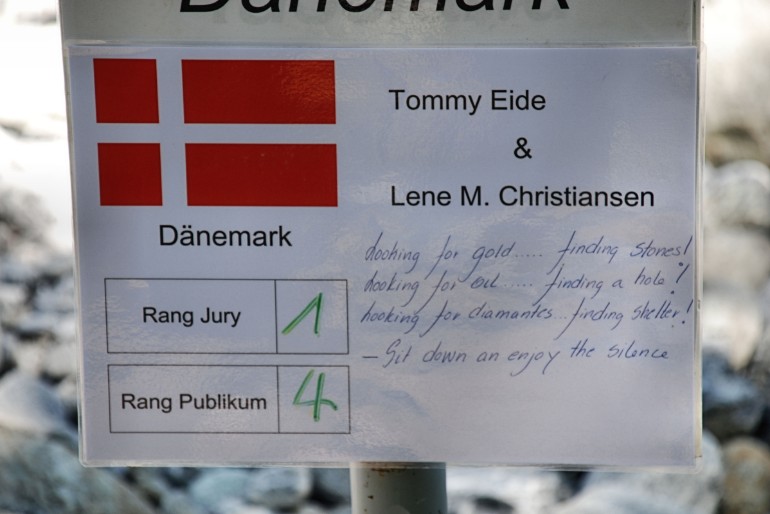 Dänemark
Tommy Eide
&
Lene M. Christiansen
Dänemark
Looking for gold..... finding stones!
Looking for oil...... finding a hole!
Looking for diamantes...finding shelter!
– Sit down an enjoy the silence
Rang Jury 1
Rang Publikum 4